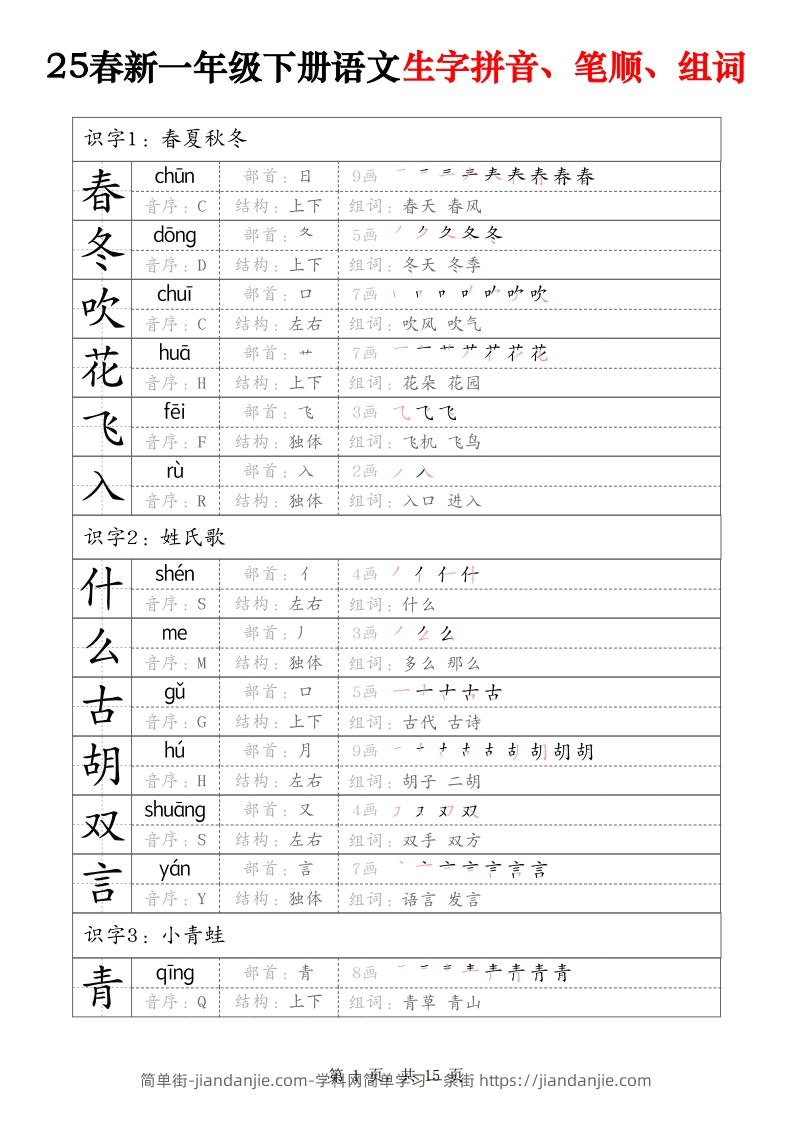 25春新一年级下册语文生字拼音、笔顺、组词
识字1：春夏秋冬
春 chūn 部首：日 9画
音序：C 结构：上下 组词：春天 春风
冬 dōng 部首：夂 5画
音序：D 结构：上下 组词：冬天 冬季
吹 chuī 部首：口 7画
音序：C 结构：左右 组词：吹风 吹气
花 huā 部首：艹 7画
音序：H 结构：上下 组词：花朵 花园
飞 fēi 部首：飞 3画
音序：F 结构：独体 组词：飞机 飞鸟
入 rù 部首：入 2画
音序：R 结构：独体 组词：入口 进入
识字2：姓氏歌
什 shén 部首：亻 4画
音序：S 结构：左右 组词：什么
么 me 部首：丿 3画
音序：M 结构：独体 组词：多么 那么
古 gǔ 部首：口 5画
音序：G 结构：上下 组词：古代 古诗
胡 hú 部首：月 9画
音序：H 结构：左右 组词：胡子 二胡
双 shuāng 部首：又 4画
音序：S 结构：左右 组词：双手 双方
言 yán 部首：言 7画
音序：Y 结构：独体 组词：语言 发言
识字3：小青蛙
青 qīng 部首：青 8画
音序：Q 结构：上下 组词：青草 青山
第 1 页，共 15 页
简单街-jiandanjie.com-学科网简单学习一条街 https://jiandanjie.com